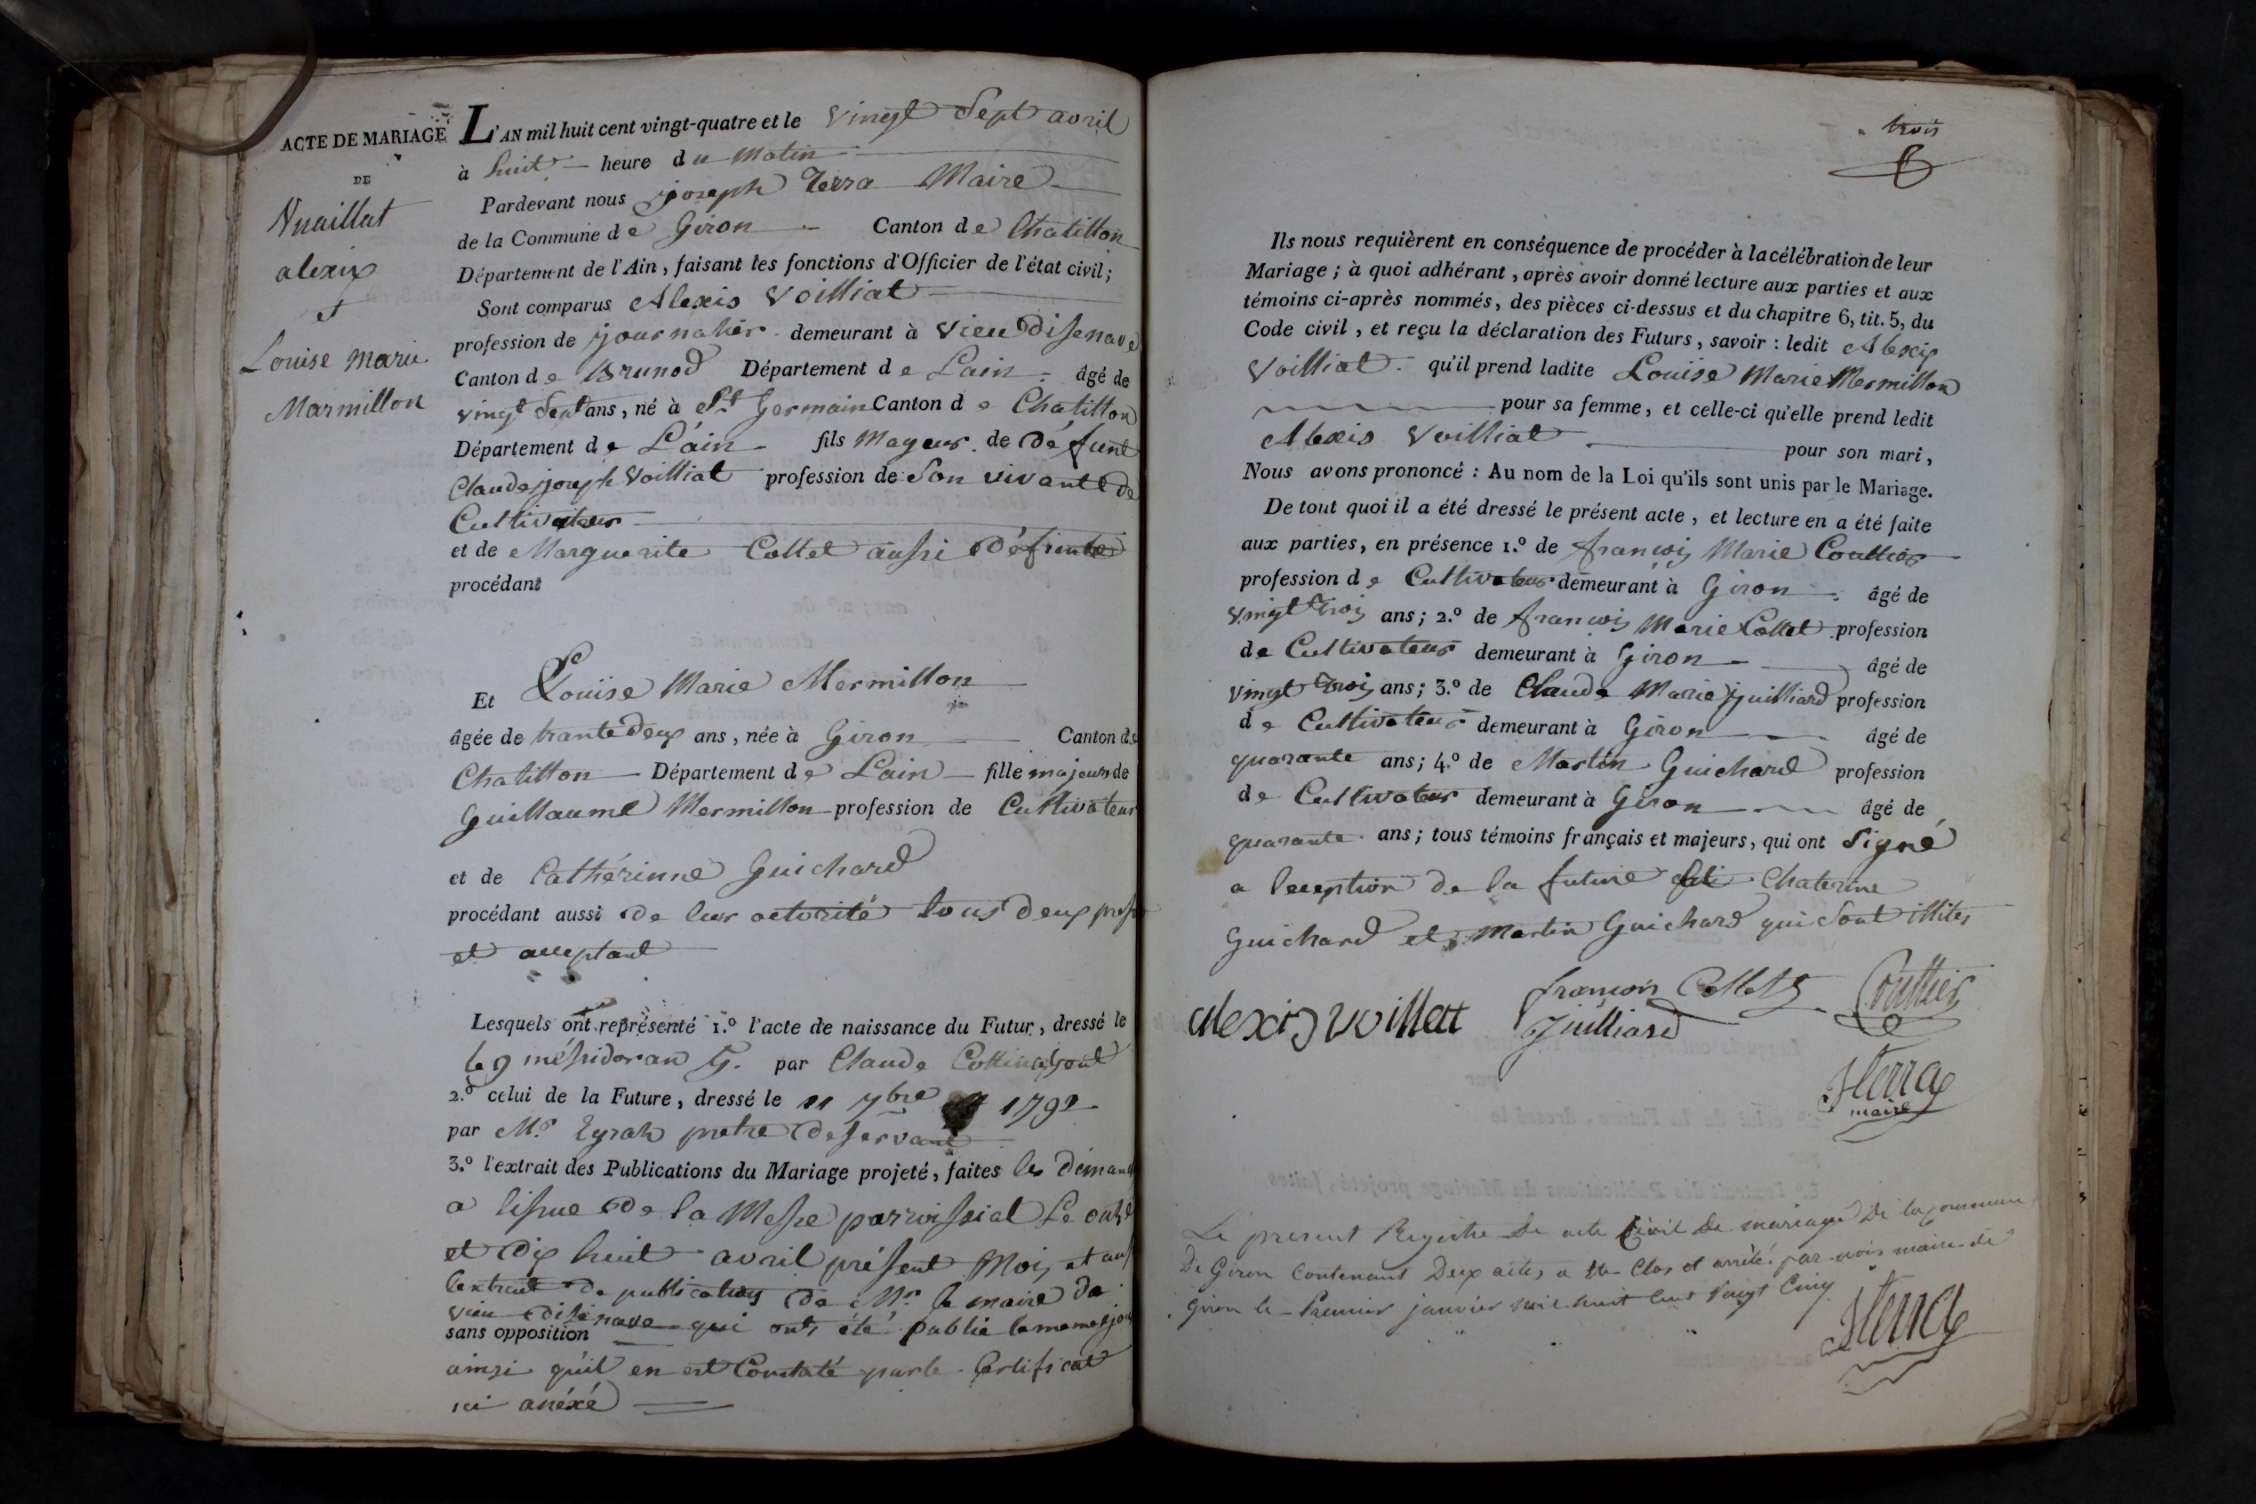 ACTE DE MARIAGE
DE
Vuaillat
alexix
et
Louise marie
Marmillon
L'AN mil huit cent vingt-quatre et le vingt Sept avril
à huit heure du Matin
Pardevant nous joseph Terra Maire
de la Commune de Giron Canton de Chatillon
Département de l'Ain, faisant les fonctions d'Officier de l'état civil;
Sont comparus Alexis Voilliat
profession de journalier demeurant à Vieu Disenave
Canton de Brunod Département de Lain âgé de
vingt Sept ans, né à St Germain Canton de Chatillon
Département de L'ain fils Mageur de défunt
Claude joseph Voilliat profession de Son vivant de
Cultivateur
et de Marguerite Collet aussi Défunte
procédant
Et Louise Marie Mermillon
âgée de trante deux ans, née à Giron Canton de
Chatillon Département de Lain fille majeur de
Guillaume Mermillon profession de Cultivateur
et de Cathérinne Guichard
procédant aussi de leur actorité tous deux
et acceptant
Lesquels ont représenté 1.º l'acte de naissance du Futur, dressé le
le 9 méssidor an 5. par Claude
2.º celui de la Future, dressé le 11 7bre 1792
par Mr pretre Desservant
3.º l'extrait des Publications du Mariage projeté, faites les
a lissue de la Messe parroissial Le onze
et dix huit avril présent Mois et
lextrait de publications de Mr le maire de
vieu disénave qui ont été publié le meme
sans opposition
ainsi qu'il en est Constaté par le Certificat
ici anéxé
trois
Ils nous requièrent en conséquence de procéder à la célébration de leur
Mariage; à quoi adhérant, après avoir donné lecture aux parties et aux
témoins ci-après nommés, des pièces ci-dessus et du chapitre 6, tit. 5, du
Code civil, et reçu la déclaration des Futurs, savoir: ledit Alexis
Voilliat qu'il prend ladite Louise Marie Mermillon
pour sa femme, et celle-ci qu'elle prend ledit
Alexis Voilliat pour son mari,
Nous avons prononcé: Au nom de la Loi qu'ils sont unis par le Mariage.
De tout quoi il a été dressé le présent acte, et lecture en a été faite
aux parties, en présence 1.º de francois Marie Couttier
profession de Cultivateur demeurant à Giron âgé de
vingt trois ans; 2.º de francois Marie Collet profession
de Cultivateur demeurant à Giron âgé de
vingt trois ans; 3.º de Claude Marie juilliard profession
de Cultivateur demeurant à Giron âgé de
quarante ans; 4.º de Martin Guichard profession
de Cultivateur demeurant à Giron âgé de
quarante ans; tous témoins français et majeurs, qui ont Signé
a leception de la future Chaterine
Guichard et Martin Guichard qui Sont illites
alexis voillatt francois Collet Couttier
Juilliard
JTerra
maire
Le present Registre de acte Civil de mariage de la commune
De Giron Contenant Deux actes a ete Clos et arrêté par nois maire de
giron le Premier janvier mil huit cent vingt Cinq
JTerra